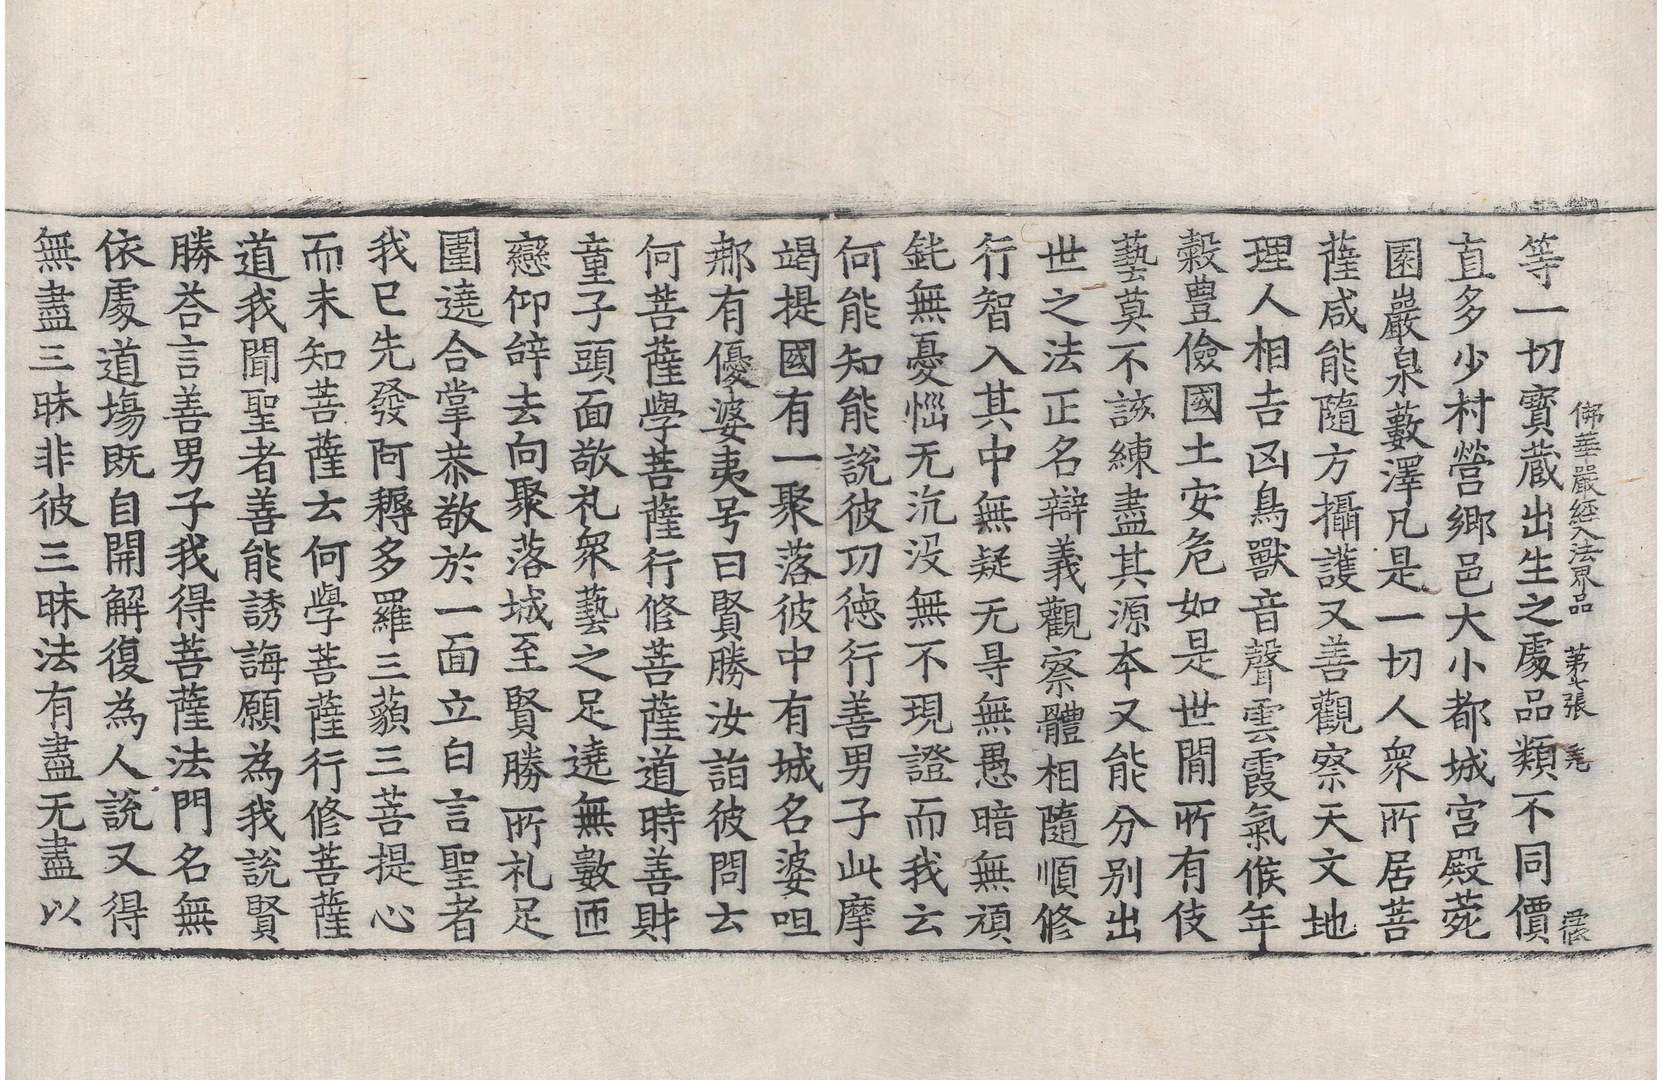 佛華嚴經入法界品　第七張　毳
等一切寶蔵出生之處品類不同價
直多少村營鄉邑大小都城宫殿菀
園巖泉藪澤凡是一切人衆所居菩
薩咸能隨方攝護又善觀察天文地
理人相吉凶鳥獸音聲雲霞氣候年
穀豊儉國土安危如是世間所有伎
藝莫不該練盡其源本又能分別出
世之法正名辯義觀察體相隨順修
行智入其中無疑无㝵無愚暗無頑
鈍無憂惱无沉没無不現證而我云
何能知能說彼㓛徳行善男子此摩
竭提國有一聚落彼中有城名婆呾
那有優婆夷号曰賢勝汝詣彼問云
何菩薩學菩薩行修菩薩道時善財
童子頭面敬礼衆藝之足遶無數匝
戀仰辞去向聚落城至賢勝所礼足
圍遶合掌恭敬於一面立白言聖者
我已先發阿耨多羅三藐三菩提心
而未知菩薩云何學菩薩行修菩薩
道我聞聖者善能誘誨願為我說賢
勝荅言善男子我得菩薩法門名無
依處道場既自開解復為人說又得
無盡三昧非彼三昧法有盡无盡以